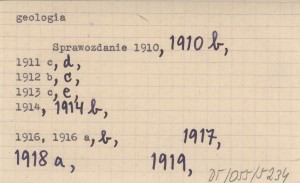 geologia
Sprawozdanie 1910, 1910 b,
1911 c, d,
1912 b, c,
1913 c, e,
1914, 1914 b,
1916, 1916 a, b, 1917,
1918 a, 1919,